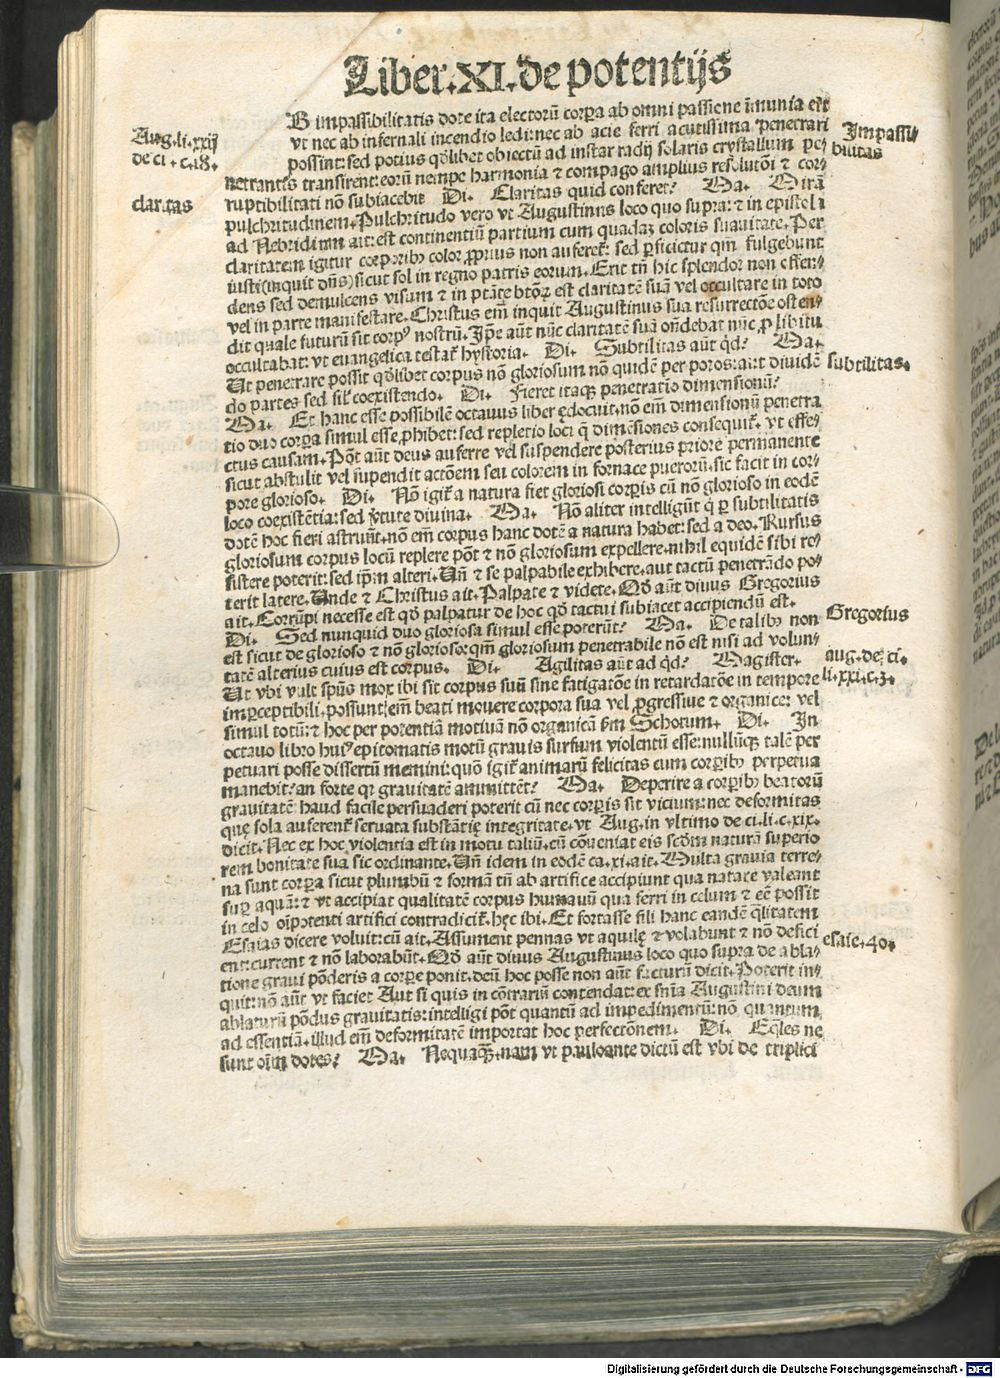 Liber.XI.de potentijs
B impassibilitatis dote ita electorū corpa ab omni passione īmunia erūt
Aug.li.xxij
de ci. c.18.
vt nec ab infernali incendio ledi:nec ab acie ferri acutissima penetrari
Impassi-
bilitas
possint:sed potius qdlibet obiectū ad instar radij solaris crystallum pe-
netrantis transirent:eorū nempe harmonia & compago amplius resolutōi & cor-
claritas
ruptibilitati nō subiacebit Di. Claritas quid conferet? Ma. Mirā
pulchritudinem.Pulchritudo vero vt Augustinus loco quo supra:& in epistola
ad Nebridium ait:est continentiū partium cum quadaz coloris suauitate.Per
claritatem igitur corporibꝰ color ꝓprius non auferet: sed ꝑficietur qm̄ fulgebunt
iusti(inquit dn̄s)sicut sol in regno patris eorum.Erit tn̄ hic splendor non offen-
dens sed demulcens visum & in ptāte btōꝝ est claritatē suā vel occultare in toto
vel in parte manifestare.Christus em̄ inquit Augustinus sua resurrectōe osten-
dit quale futurū sit corpꝰ nostrū.Ipe aūt nūc claritatē suā ondebat nūc ꝓ libitu
occultabat:vt euangelica testat hystoria. Di. Subtilitas aūt qd? Ma.
subtilitas.
Ut penetrare possit qdlibet corpus nō gloriosum nō quidē per poros:aut diuidē
do partes sed sil coexistendo. Di. Fieret itaqꝫ penetratio dimensionū?
Ma. Et hanc esse possibilē octauus liber ędocuit.nō em̄ dimensionū penetra
tio duo corpa simul esse ꝓhibet:sed repletio loci q̄ dimēsiones consequit. vt effe-
ctus causam.Pōt aūt deus auferre vel suspendere posterius priore permanente
sicut abstulit vel supendit actōem seu colorem in fornace puerorū.sic facit in cor-
pore glorioso. Di. Nō igit a natura fiet gloriosi corpis cū nō glorioso in eodē
loco coexistētia:sed ꝟtute diuina. Ma. Nō aliter intelligūt q̄ ꝑ subtilitatis
dotē hoc fieri astrunt.nō em̄ corpus hanc dotē a natura habet:sed a deo.Rursus
gloriosum corpus locū replere pōt & nō gloriosum expellere.nihil equidē sibi re-
sistere poterit:sed ipm̄ alteri.Un̄ & se palpabile exhibere.aut tactū penetrādo po-
terit latere.Unde & Christus ait.Palpate & videte.Qd aūt diuus Gregorius
ait.Corrūpi necesse est qd palpatur de hoc qd tactui subiacet accipiendū est.
Gregorius
Di. Sed nunquid duo gloriosa simul esse poterūt? Ma. De talibꝰ non
est sicut de glorioso & nō glorioso:qm̄ gloriosum penetrabile nō est nisi ad volun-
aug.de.ci.
li.xxi.c.3.
tatē alterius cuius est corpus. Di. Agilitas aūt ad qd? Magister.
Ut vbi vult spūs mox ibi sit corpus suū sine fatigatōe in retardatōe in tempore
imꝑceptibili.possunt em̄ beati mouere corpora sua vel ꝓgressiue & organice: vel
simul totū:& hoc per potentiā motiuā nō organicā ẜm Schotum. Di. In
octauo libro huiꝰ epitomatis motū grauis sursum violentū esse:nullūqꝫ talē per
petuari posse dissertū memini:quō igit animarū felicitas eum corpibꝰ perpetua
manebit?an forte qr grauitatē amittēt? Ma. Deperire a corpibꝰ beatorū
grauitatē:haud facile persuaderi poterit cū nec corpis sit vicium:nec deformitas
quę sola auferent seruata substātię integritate.vt Aug.in vltimo de ci.li.c.xix.
dicit.Nec ex hoc violentia est in motu taliū.cū cōueniat eis scdm̄ naturā superio
rem bonitate sua sic ordinante.Un̄ idem in eodē ca.xi.ait.Multa grauia terre-
na sunt corpa sicut plumbū & formā tn̄ ab artifice accipiunt qua natare valeant
suꝑ aquā:& vt accipiat qualitatē corpus humanū qua ferri in celum & eē possit
in celo oīpotenti artifici contradicit.hęc ibi.Et fortasse fili hanc eandē qlitatem
Esaias dicere voluit:cū ait.Assument pennas vt aquilę & volabunt & nō defici
esaie.40.
ent:current & nō laborabūt.Qd aūt diuus Augustinus loco quo supra de abla-
tione graui pōderis a corpe ponit.deū hoc posse non aūt facturū dicit.Poterit in-
quit:nō aūt vt faciet Aut si quis in cōtrariū contendat:ex snīa Augustini deum
ablaturū pōdus grauitatis:intelligi pōt quantū ad impedimentū:nō quantum
ad essentiā.illud em̄ deformitatē importat hoc perfectōnem. Di. Eqles ne
sunt oīm dotes? Ma. Nequaqꝫ.nam vt pauloante dictū est vbi de triplici
Digitalisierung gefördert durch die Deutsche Forschungsgemeinschaft - DFG